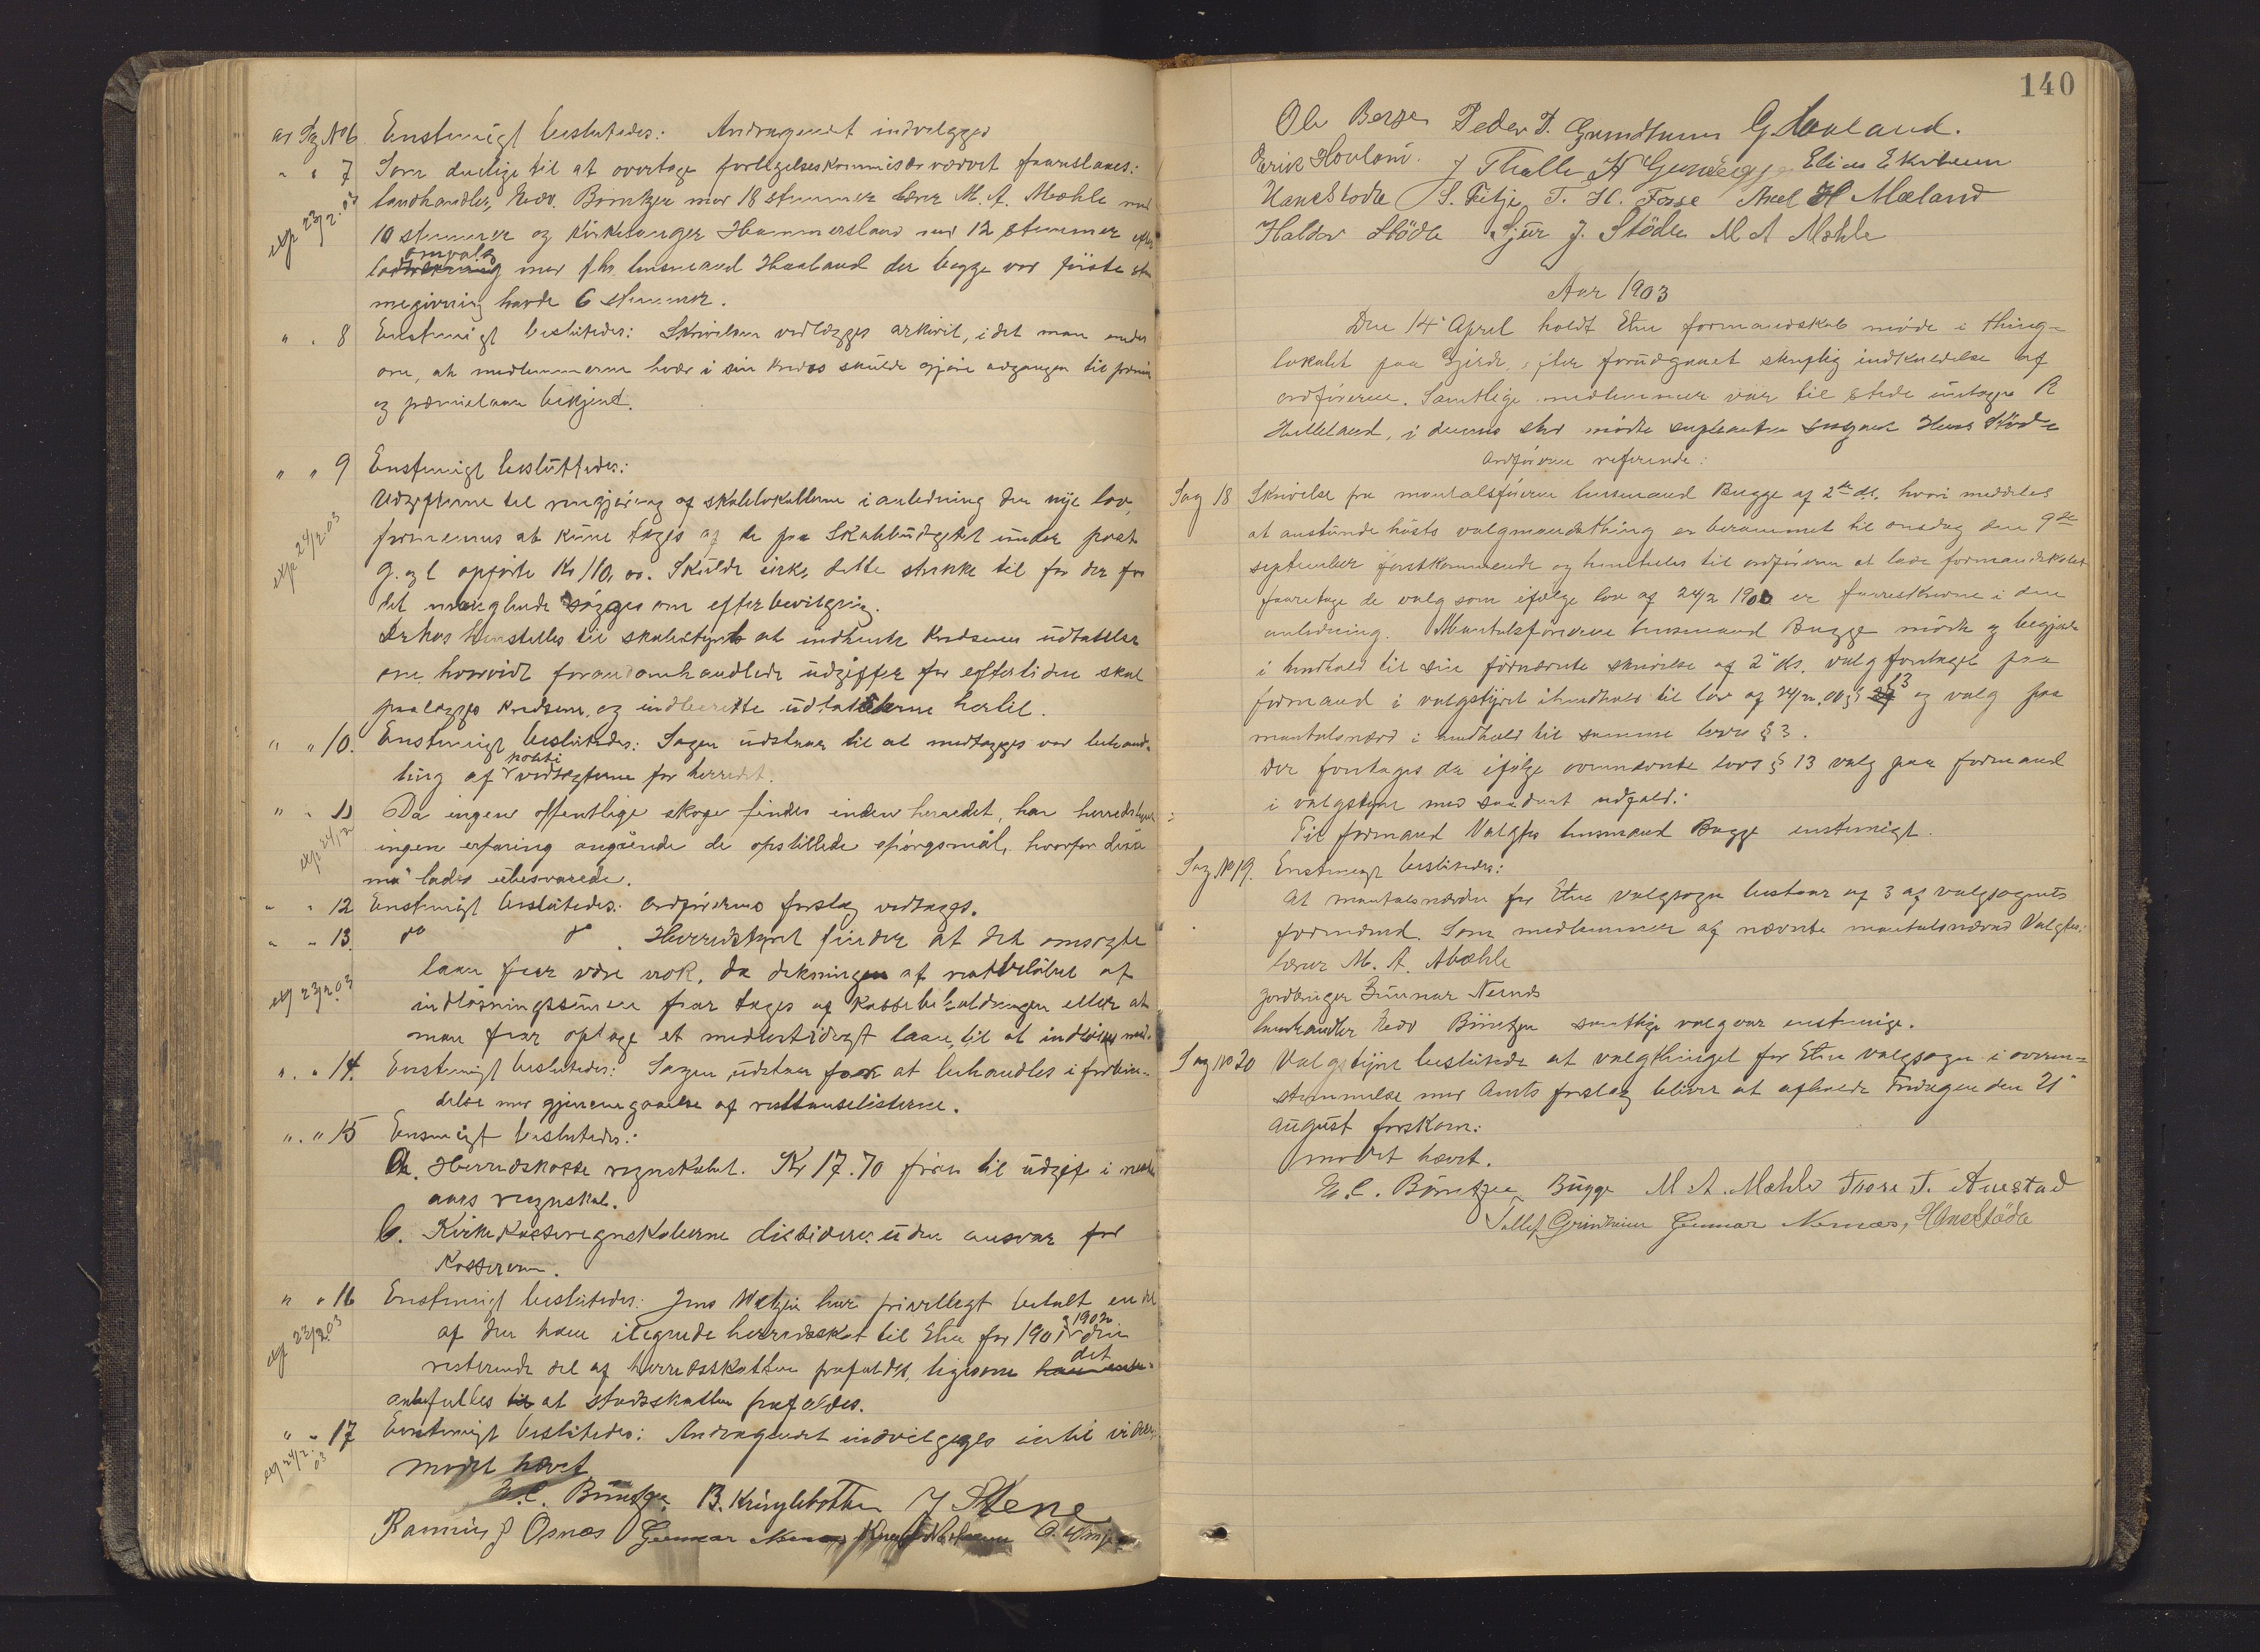 ar Sag No 6. Enstemigt beslutedes: Andragendet indvilgges
" " 7 Som duelige til at overtage forligelseskommissærvervet foreslaaes:
exp 23/2. 03
landhandler Nedv. Büntzen med 18 stemmer lærer M. A. Mæhle med
10 stemmer og Kirkesanger Hammersland med 12 stemmer efter
omvalg
med fhv. lensmand Haaland der begge ved første stem
megivning havde 6 stemmer.
" " 8 Enstemigt beslutedes: Skrivelsen vedlægges arkivet, idet man
om, at medlemmerne hver i sin kreds skulde gjøre adgangen til
og præmielaan bekjent.
" " 9 Enstemigt besluttedes:
exp 24/2 03
Udgifterne til rengjøring af skolelokallerne i anledning den nye lov,
formenes at kune tages af de paa Skolebudgettet under post
g. og l opførte Kr 110,00. Skulde ikke dette strække til faar der for
det manglende søgges om efterbevilgning.
Derhos henstilles til skolestyret at indhente kredsenes udtattelse
om hvorvidt foranomhandlede udgifter for eftertiden skal
paalægges kredsene, og indberette udtattelserne hertil.
" " 10. Enstemigt beslutedes: Sagen udstaar til at medtagges ved behand-
politi
ling af vedtægterne for herredet.
" " 11 Da ingen offentlige skoge findes inden herredet, har herredstyret
exp. 24/2
ingen erfaring angående de opstillede spörgsmål, hvorfor disse
må lades ubesvarede.
" " 12 Enstemigt beslutedes: Ordførerens forslag vedtages.
" " 13. do do. Herredstyret finder at det omsøgte
laan faar være væk, da dekningen af restbeløbet af
exp 23/2 03
indløsningssummen faar tages af Kassebeholdningen eller at
man faar optage et medlertidigt laan, til at indløse med.
" " 14. Enstemigt beslutedes: Sagen udstaar for at behandles i forbin-
delse med gjennemgaaelse af resttanselisterne.
" " 15 Ensmigt beslutedes:
a. Herredskasse regnskabet. Kr 17.70 føres til udgift i næste
aars regnskab.
b. Kirkekasseregnskaberne desideres uden ansvar for
Kassereren.
" " 16 Enstemigt beslutedes: Jens Wetjen har privillegt betalt en del
exp 23/2 03
& 1902
af den ham ilegnede herredsskat til Etne for 1901 den
det
resterende del af herredsskatten frafaldes, ligesom
anbefalles at stadsskatten frafaldes.
" " 17 Enstemigt beslutedes: Andragendet indvilgeges intil videre.
exp 24/2. 03
Mødet hævet
N. C. Büntzen B. Kringlebotten J Stene
Rasmus J Osnes Gunnar Nernes O. Winje
140
Ole Berge Peder T. Grindheim G Haaland.
Erik Hovland. J Thalle Elias Ekrheim
Hans Stødle S. Fitje T. H. Fosse Axel H Mæland
Haldor Stödle Sjur J. Stödle M A Mæhle
Aar 1903
Den 14' April holdt Etne formandskab møde i thing-
lokalet paa Gjerde, efter forudgaaet skriftlig indkaldelse af
ordføreren. Samtlige medlemmer var til stede untagen R
Helleland, i dennes sted mødte suplanten Hans Stødle
Ordføreren referende:
Sag 18 Skrivelse fra mantalsføreren lensmand Bugge af 2de ds. hvori meddeles
at anstunde høsts valgmandsthing er berammet til onsdag den 9de
september førstkommende og henstiller til ordføreren at lade formandskabet
foretage de valg som ifølge lov af 24/2 1900 er foreskrevne i den
anledning. Mantalsføreren lensmand Bugge mødte og begjærte
i henhold til sin førnevnte skrivelse af 2' ds. valg foretaget paa
13
formand i valgstyret i henhold til lov af 24/2. 00 § og valg paa
mantalsnævnd i henhold til samme lovs § 3.
Der foretages da ifølge ovennævnte lovs § 13 valg paa formand
i valgstyret med saadant udfald:
Til formand Valgtes lensmand Bugge enstemigt.
Sag No 19. Enstemigt beslutedes:
At mantalsnævnden for Etne valgsogn bestaar af 3 af valgsognets
formænd. Som medlemmer af nævnte mantalsnævnd Valgtes:
lærer M. A. Mæhle
Jordbruger Gunnar Nernes
landhandler Nedv Büntzen samtlige valg var enstemige.
Sag No 20 Valgstyret beslutede at valgthinget for Etne valgsogn i overen-
stemmelse med Amts forslag bliver at afholde Fredagen den 21'
August førstkom:
Mødet hævet.
N. C. Büntzen Bugge M A. Mæhle Tore T. Austad
Tollef Grindheim Gunnar Nernes, Hans Stødle